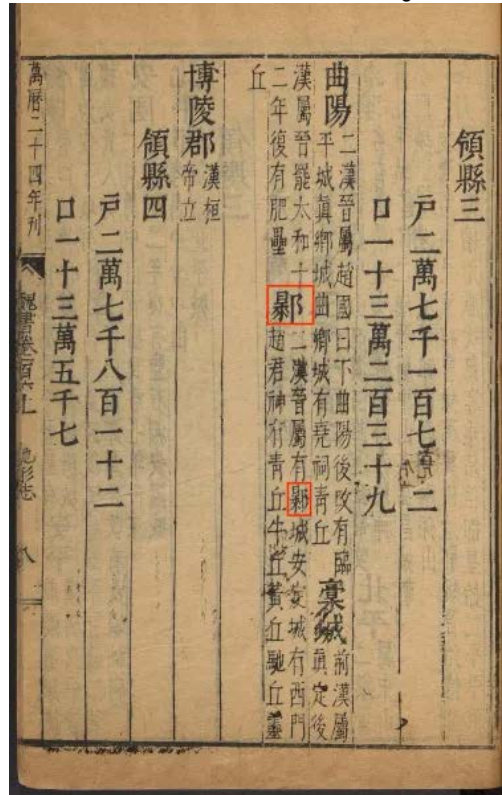 領縣三
戶二萬七千一百七二
口一十三萬二百三十九
曲陽二漢晉屬趙國曰下曲陽後改有臨
平城真鄉城曲鄉城有堯祠青丘稾城前漢屬
真定後
漢屬晉罷太和十
二年復有肥壘鄡二漢晉屬有鄡城安定城有西門
趙君神有青丘牛丘黃丘馳丘靈
丘
博陵郡漢桓
帝立
領縣四
戶二萬七千八百一十二
口一十三萬五千七
萬曆二十四年刊
魏書卷一百六上 地形志 八